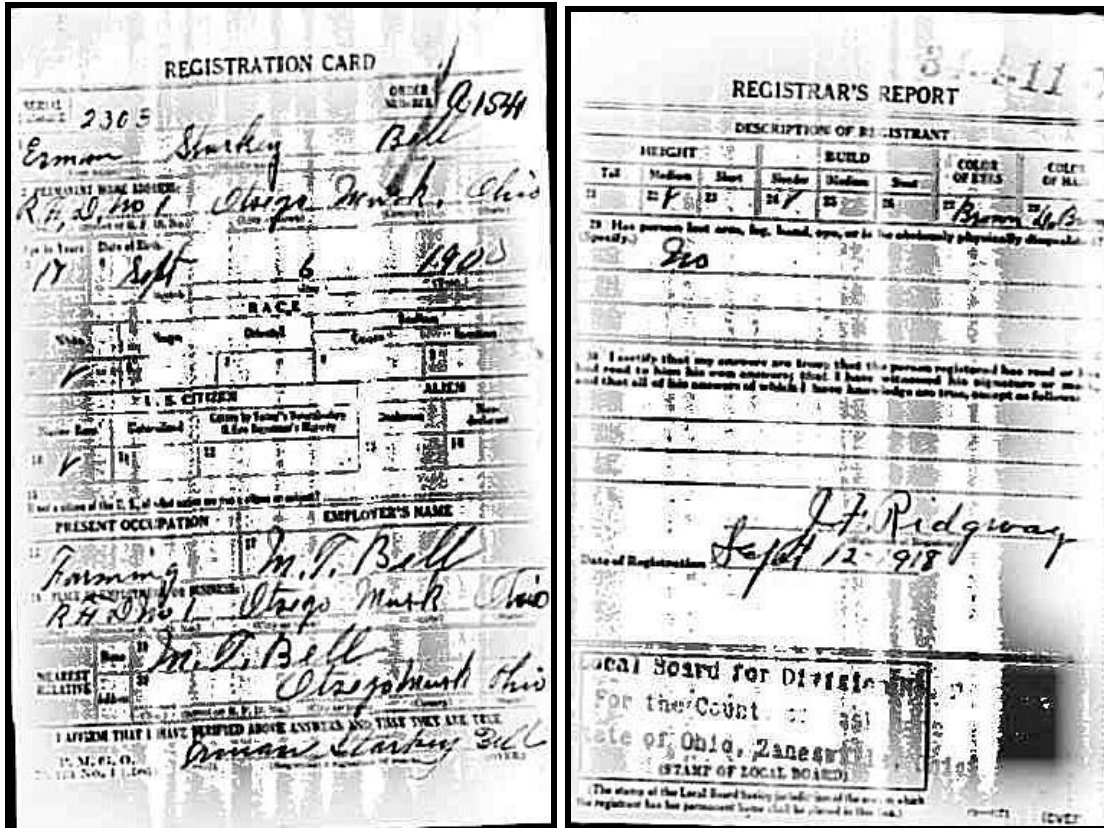 REGISTRATION CARD
SERIAL NUMBER 2305 ORDER NUMBER A1541
Erman Starkey Bell
2 PERMANENT HOME ADDRESS:
R.F.D. No 1 Otsego Musk. Ohio
Age in Years Date of Birth
Sept 6 1900
RACE
White Negro Oriental
U. S. CITIZEN ALIEN
Native Born Naturalized
10 11 12 13 14
PRESENT OCCUPATION EMPLOYER'S NAME
Farming M. T. Bell
PLACE OF EMPLOYMENT OR BUSINESS:
R F D No 1 Otsego Musk Ohio
NEAREST RELATIVE Name M. T. Bell
Address Otsego Musk Ohio
I AFFIRM THAT I HAVE VERIFIED ABOVE ANSWERS AND THAT THEY ARE TRUE
P. M. G. O.
Erman Starkey Bell
(OVER)
REGISTRAR'S REPORT
DESCRIPTION OF REGISTRANT
HEIGHT BUILD COLOR OF EYES COLOR
Tall Medium Short Slender Medium Stout
21 22 23 24 25 26 27 Brown 28
29 Has person lost arm, leg, hand, eye, or is he obviously physically disqualified?
(Specify.) No
30 I certify that my answers are true; that the person registered has read or has
had read to him his own answers; that I have witnessed his signature or
and that all of his answers of which I have knowledge are true, except as follows:
J. F. Ridgway
Date of Registration Sept 12 1918
Local Board for Division
For the Count
State of Ohio, Zanesville
(STAMP OF LOCAL BOARD)
(The stamp of the Local Board having jurisdiction of the area in which
the registrant has his permanent home shall be placed in this box.)
(OVER)